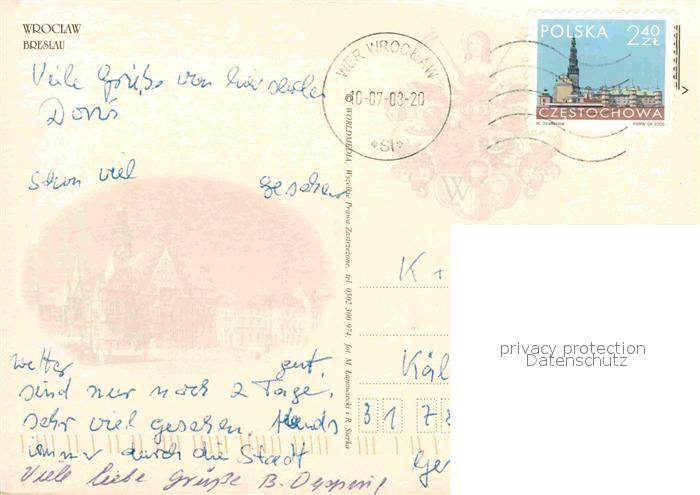 WROCŁAW
BRESLAU
Viele Grüße von hier senden
Doris
schon viel gesehen
Wetter gut,
sind nur noch 2 Tage.
sehr viel gesehen. Abends
immer durch die Stadt
Viele liebe Grüße B.
WER WROCŁAW
10-07-08-20
*SI*
POLSKA 2,40 ZŁ
CZĘSTOCHOWA
PWPW SA 2006
© WORLDMEDIA. Wszelkie Prawa Zastrzeżone. tel. 0502 300 974, fot. M. Lanowiecki i R. Sierka
W
K +
Käl
3 1 7
Ger
privacy protection
Datenschutz